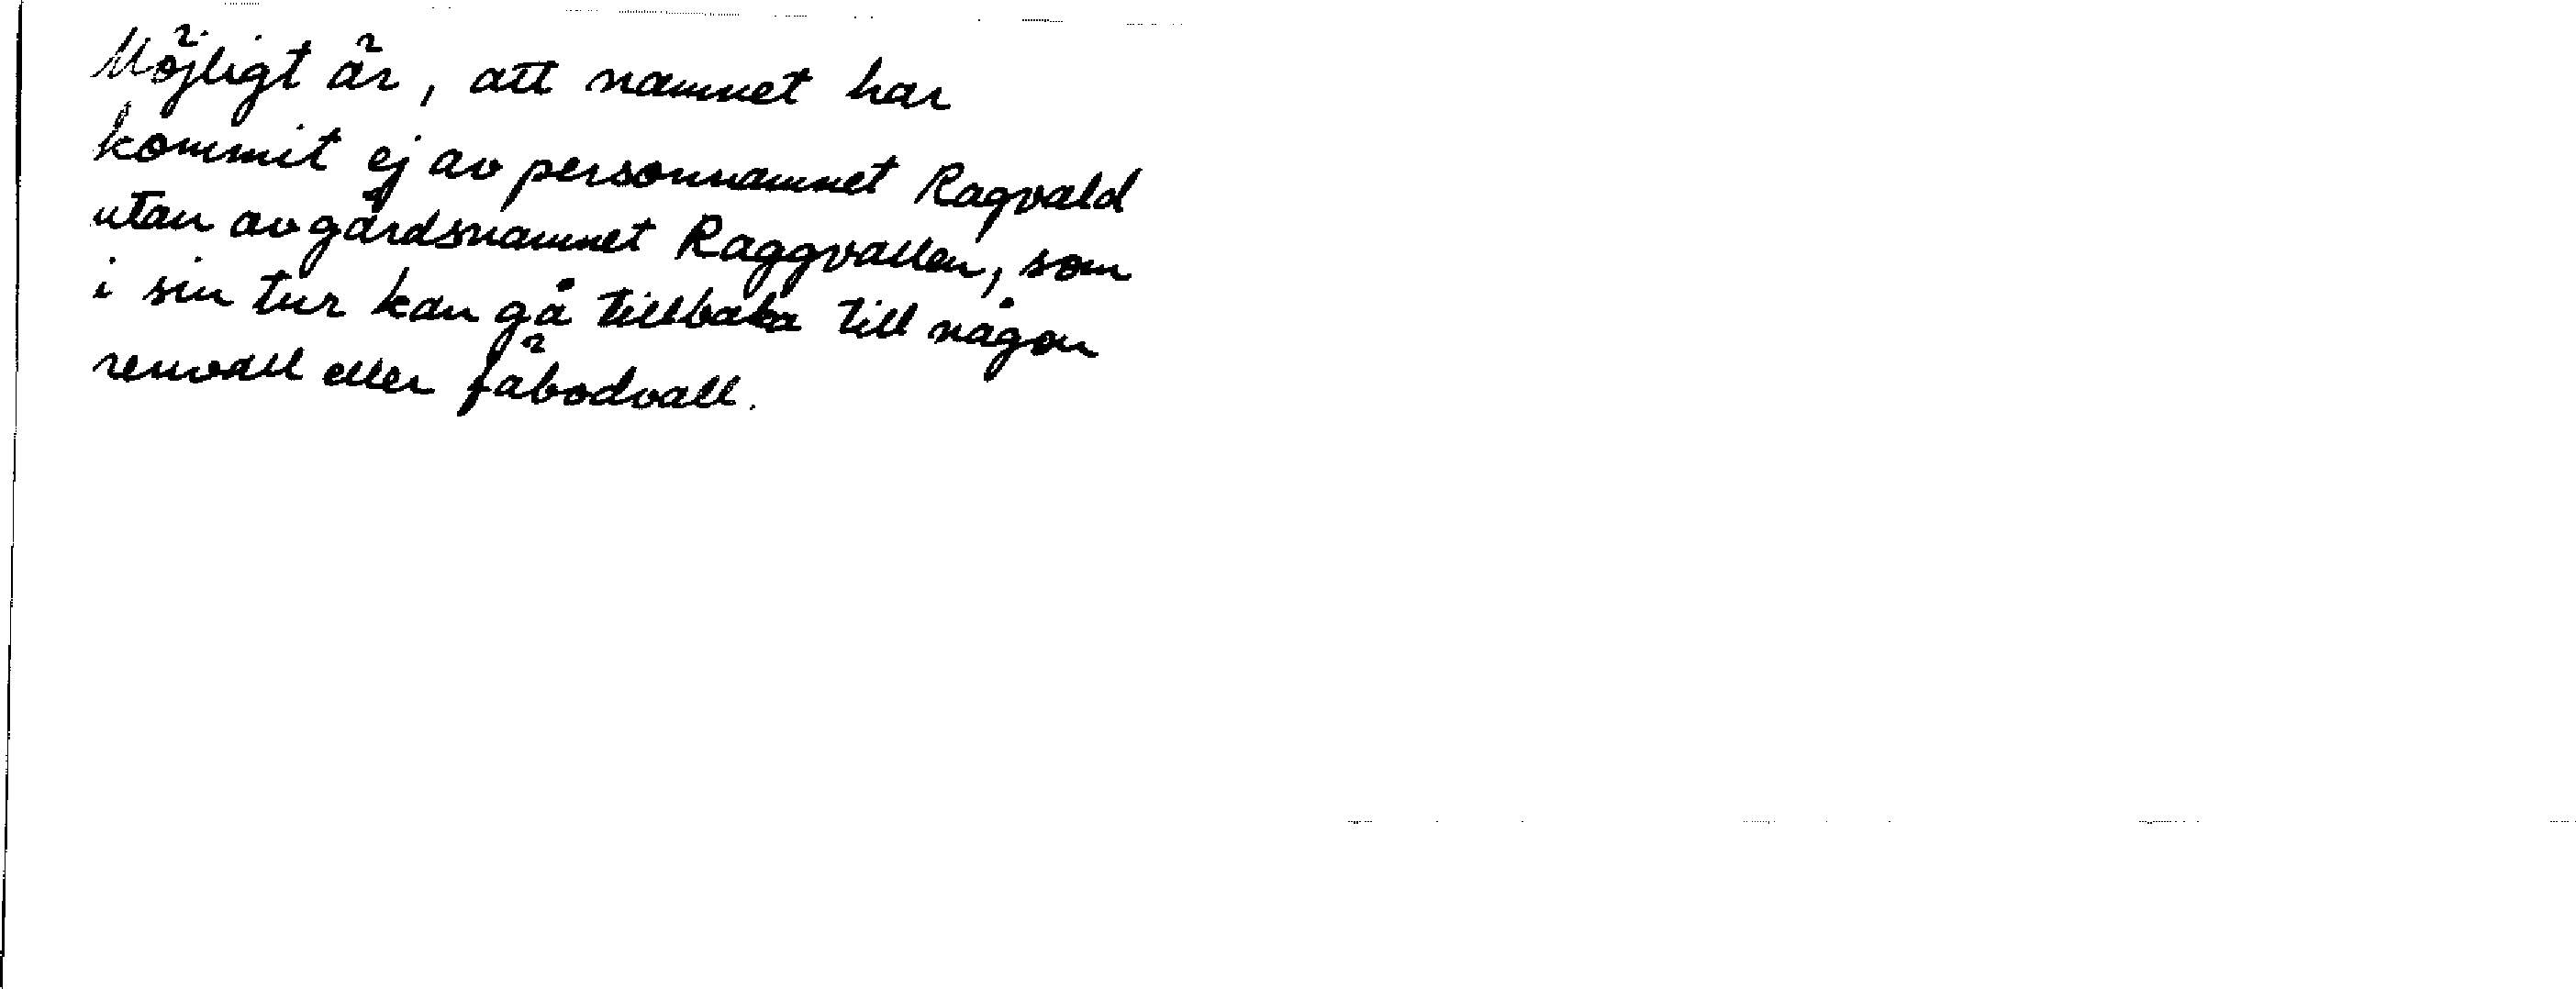 Möjligt är, att namnet har
kommit ej av personnamnet Ragvald
utan av gårdsnamnet Raggvallen, som
i sin tur kan gå tillbaka till någon
renvall eller fäbodvall.